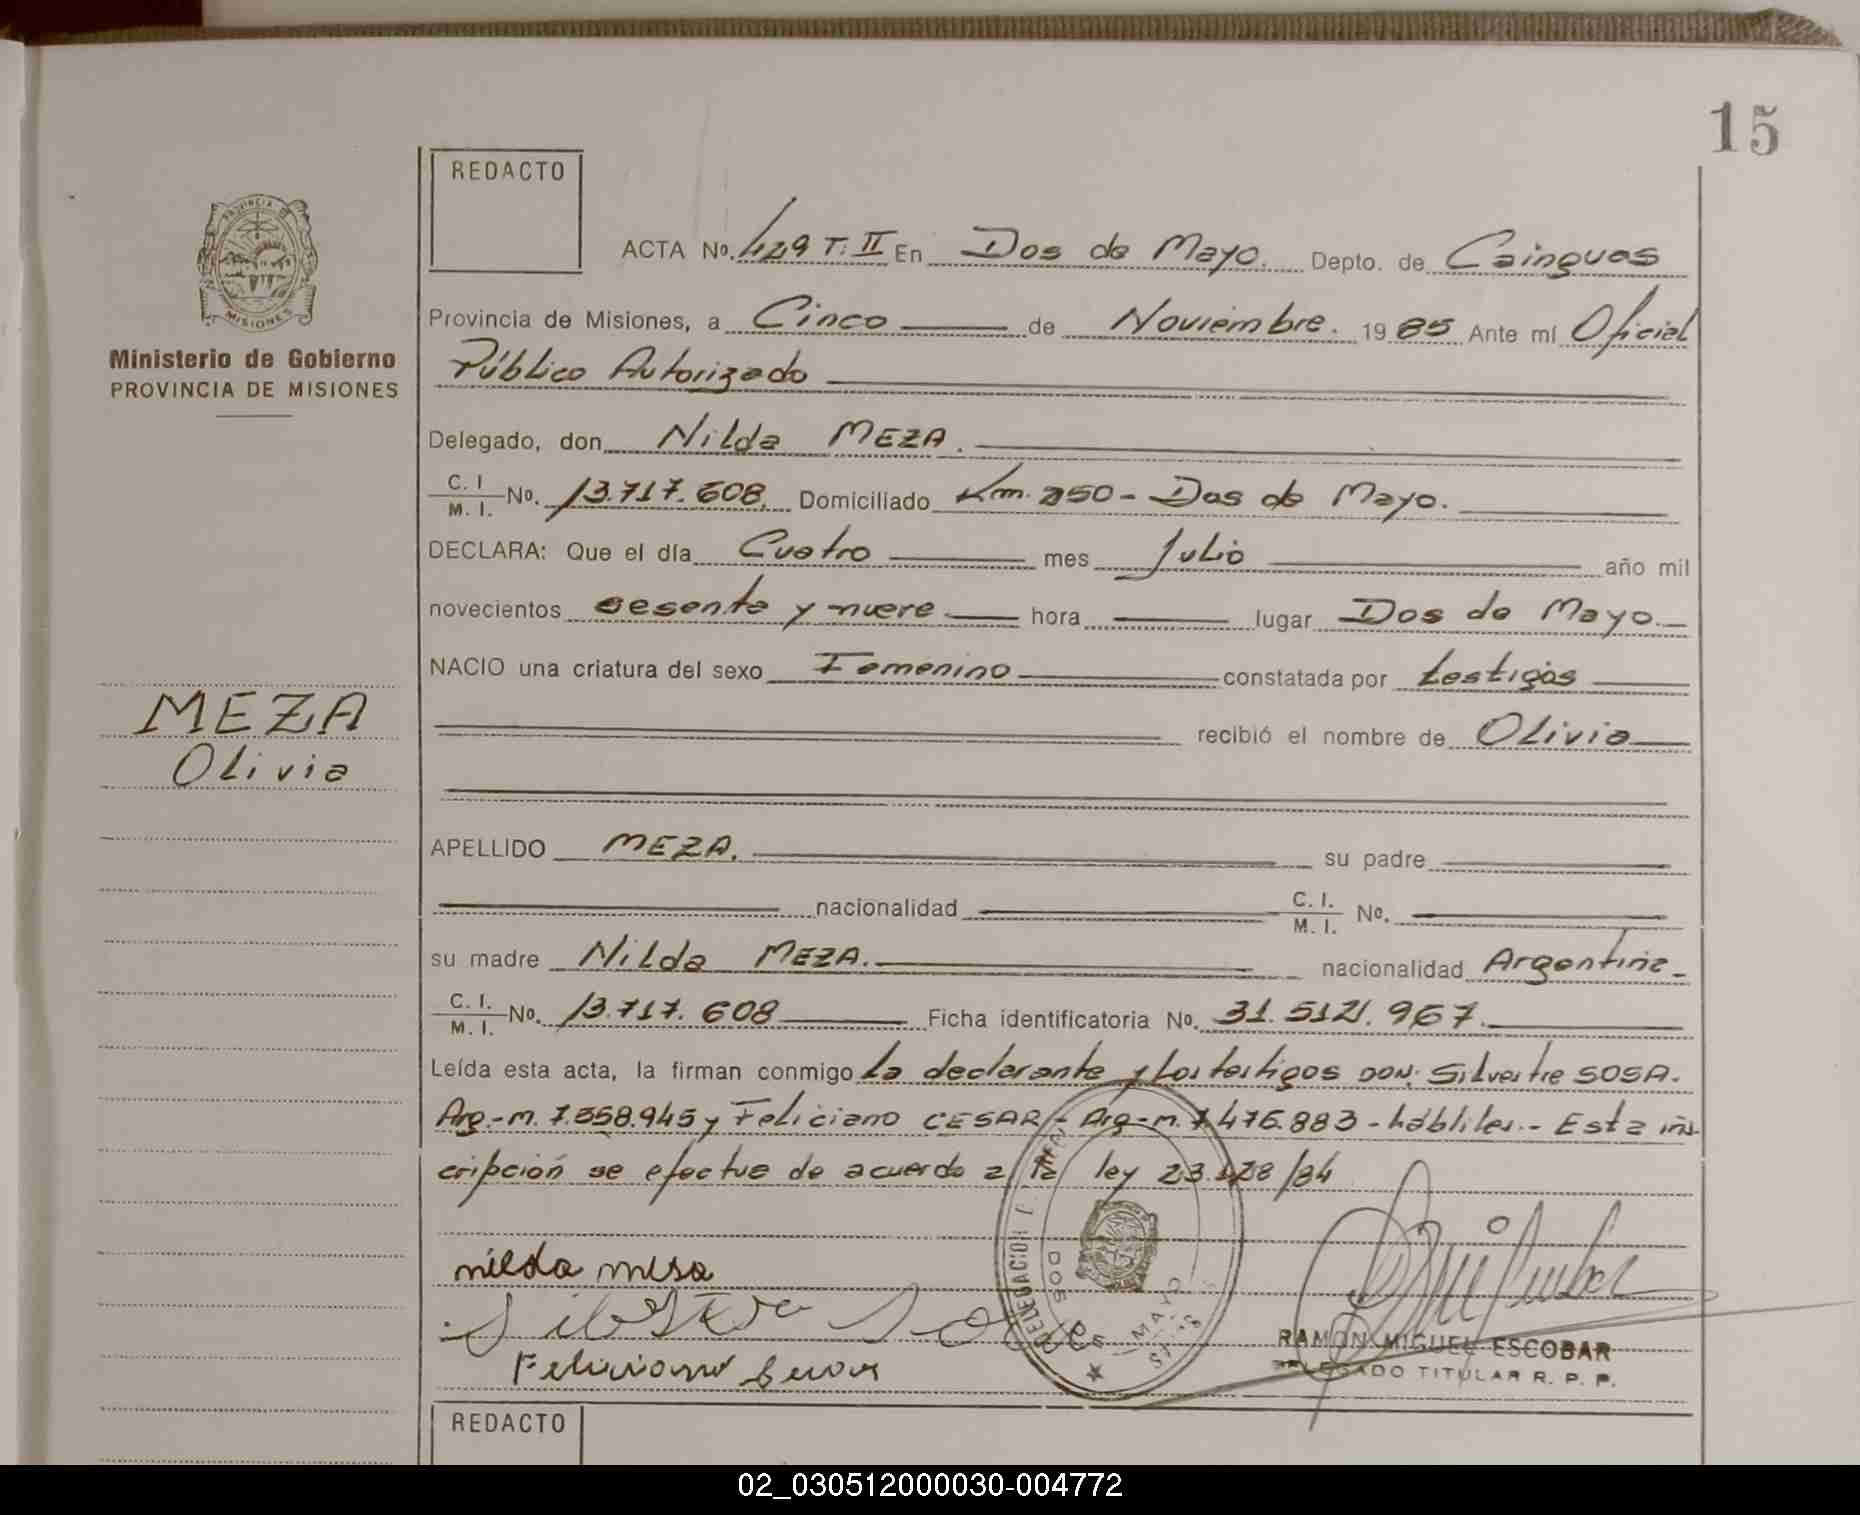 15
REDACTO
PROVINCIA DE
MISIONES
Ministerio de Gobierno
PROVINCIA DE MISIONES
ACTA No. 429 T. II En Dos de Mayo. Depto. de Cainguas
Provincia de Misiones, a Cinco de Noviembre. 1985 Ante mí Oficial
Público Autorizado
Delegado, don Nilda MEZA.
C. I. / M. I. No. 13.717.608, Domiciliado Km. 250 - Dos de Mayo.
DECLARA: Que el día Cuatro mes Julio año mil
novecientos sesenta y nueve hora lugar Dos de Mayo.
NACIO una criatura del sexo Femenino constatada por testigos
recibió el nombre de Olivia
MEZA
Olivia
APELLIDO MEZA. su padre
nacionalidad C. I. / M. I. No.
su madre Nilda MEZA. nacionalidad Argentina
C. I. / M. I. No. 13.717.608 Ficha identificatoria No. 31.512.967.
Leída esta acta, la firman conmigo la declarante y los testigos DON: Silvestre SOSA.
Arg.-m. 7.558.945 y Feliciano CESAR - Arg-m. 7.476.883 - hábliles.- Esta ins
cripción se efectua de acuerdo a la ley 23.128/84
nilda mesa
DELEGACION
DOS DE MAYO
RAMON MIGUEL ESCOBAR
DELEGADO TITULAR R. P. P.
REDACTO
02_030512000030-004772